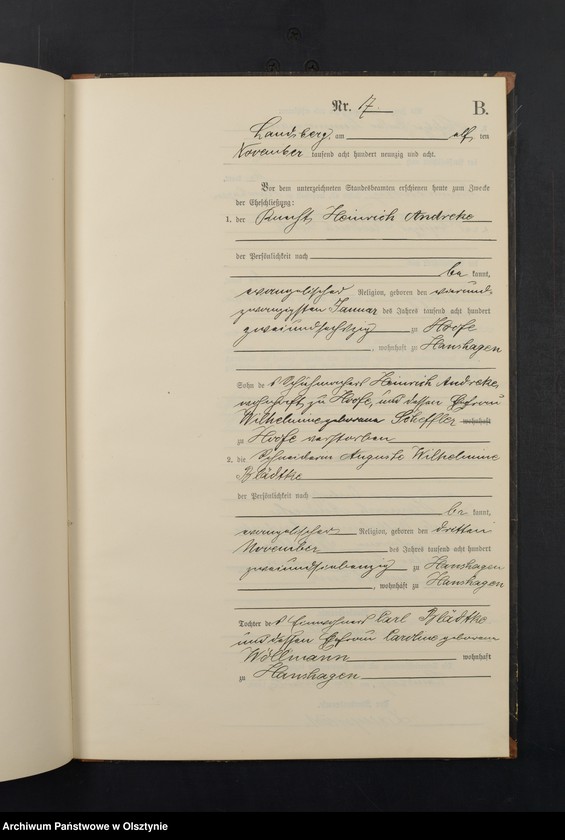 Nr. 17. B.
Landsberg, am elf ten
November tausend acht hundert neunzig und acht.
Vor dem unterzeichneten Standesbeamten erschienen heute zum Zwecke
der Eheschließung:
1. der Heinrich Andreke
der Persönlichkeit nach
be kannt,
evangelischer Religion, geboren den vierund-
zwanzigsten Januar des Jahres tausend acht hundert
zweiundsechzig zu Hoofe
, wohnhaft zu Hanshagen
Sohn des Schuhmachers Heinrich Andreke,
wohnhaft zu Hoofe, und dessen Ehefrau
Wilhelmine geborene Scheffler wohnhaft
zu Hoofe verstorben
2. die Schneiderin Auguste Wilhelmine
Blädtke
der Persönlichkeit nach
be kannt,
evangelischer Religion, geboren den dritten
November des Jahres tausend acht hundert
zweiundsiebenzig zu Hanshagen
, wohnhaft zu Hanshagen
Tochter des Einwohners Carl Blädtke
und dessen Ehefrau Caroline geborene
Wöllmann wohnhaft
zu Hanshagen
Archiwum Państwowe w Olsztynie